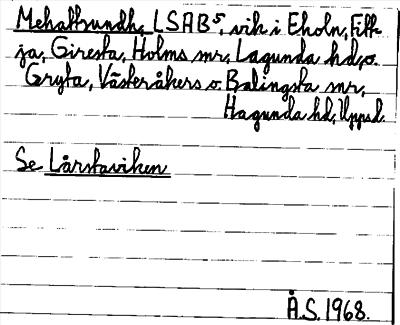 Mehattsundh, LSAB⁵, vik i Eholn, Fitt-
ja, Giresta, Holms snr, Lagunda hd, o.
Gryta, Västeråkers o. Balingsta snr,
Hagunda hd, Uppsd.
Se Lårstaviken
Å.S. 1968.